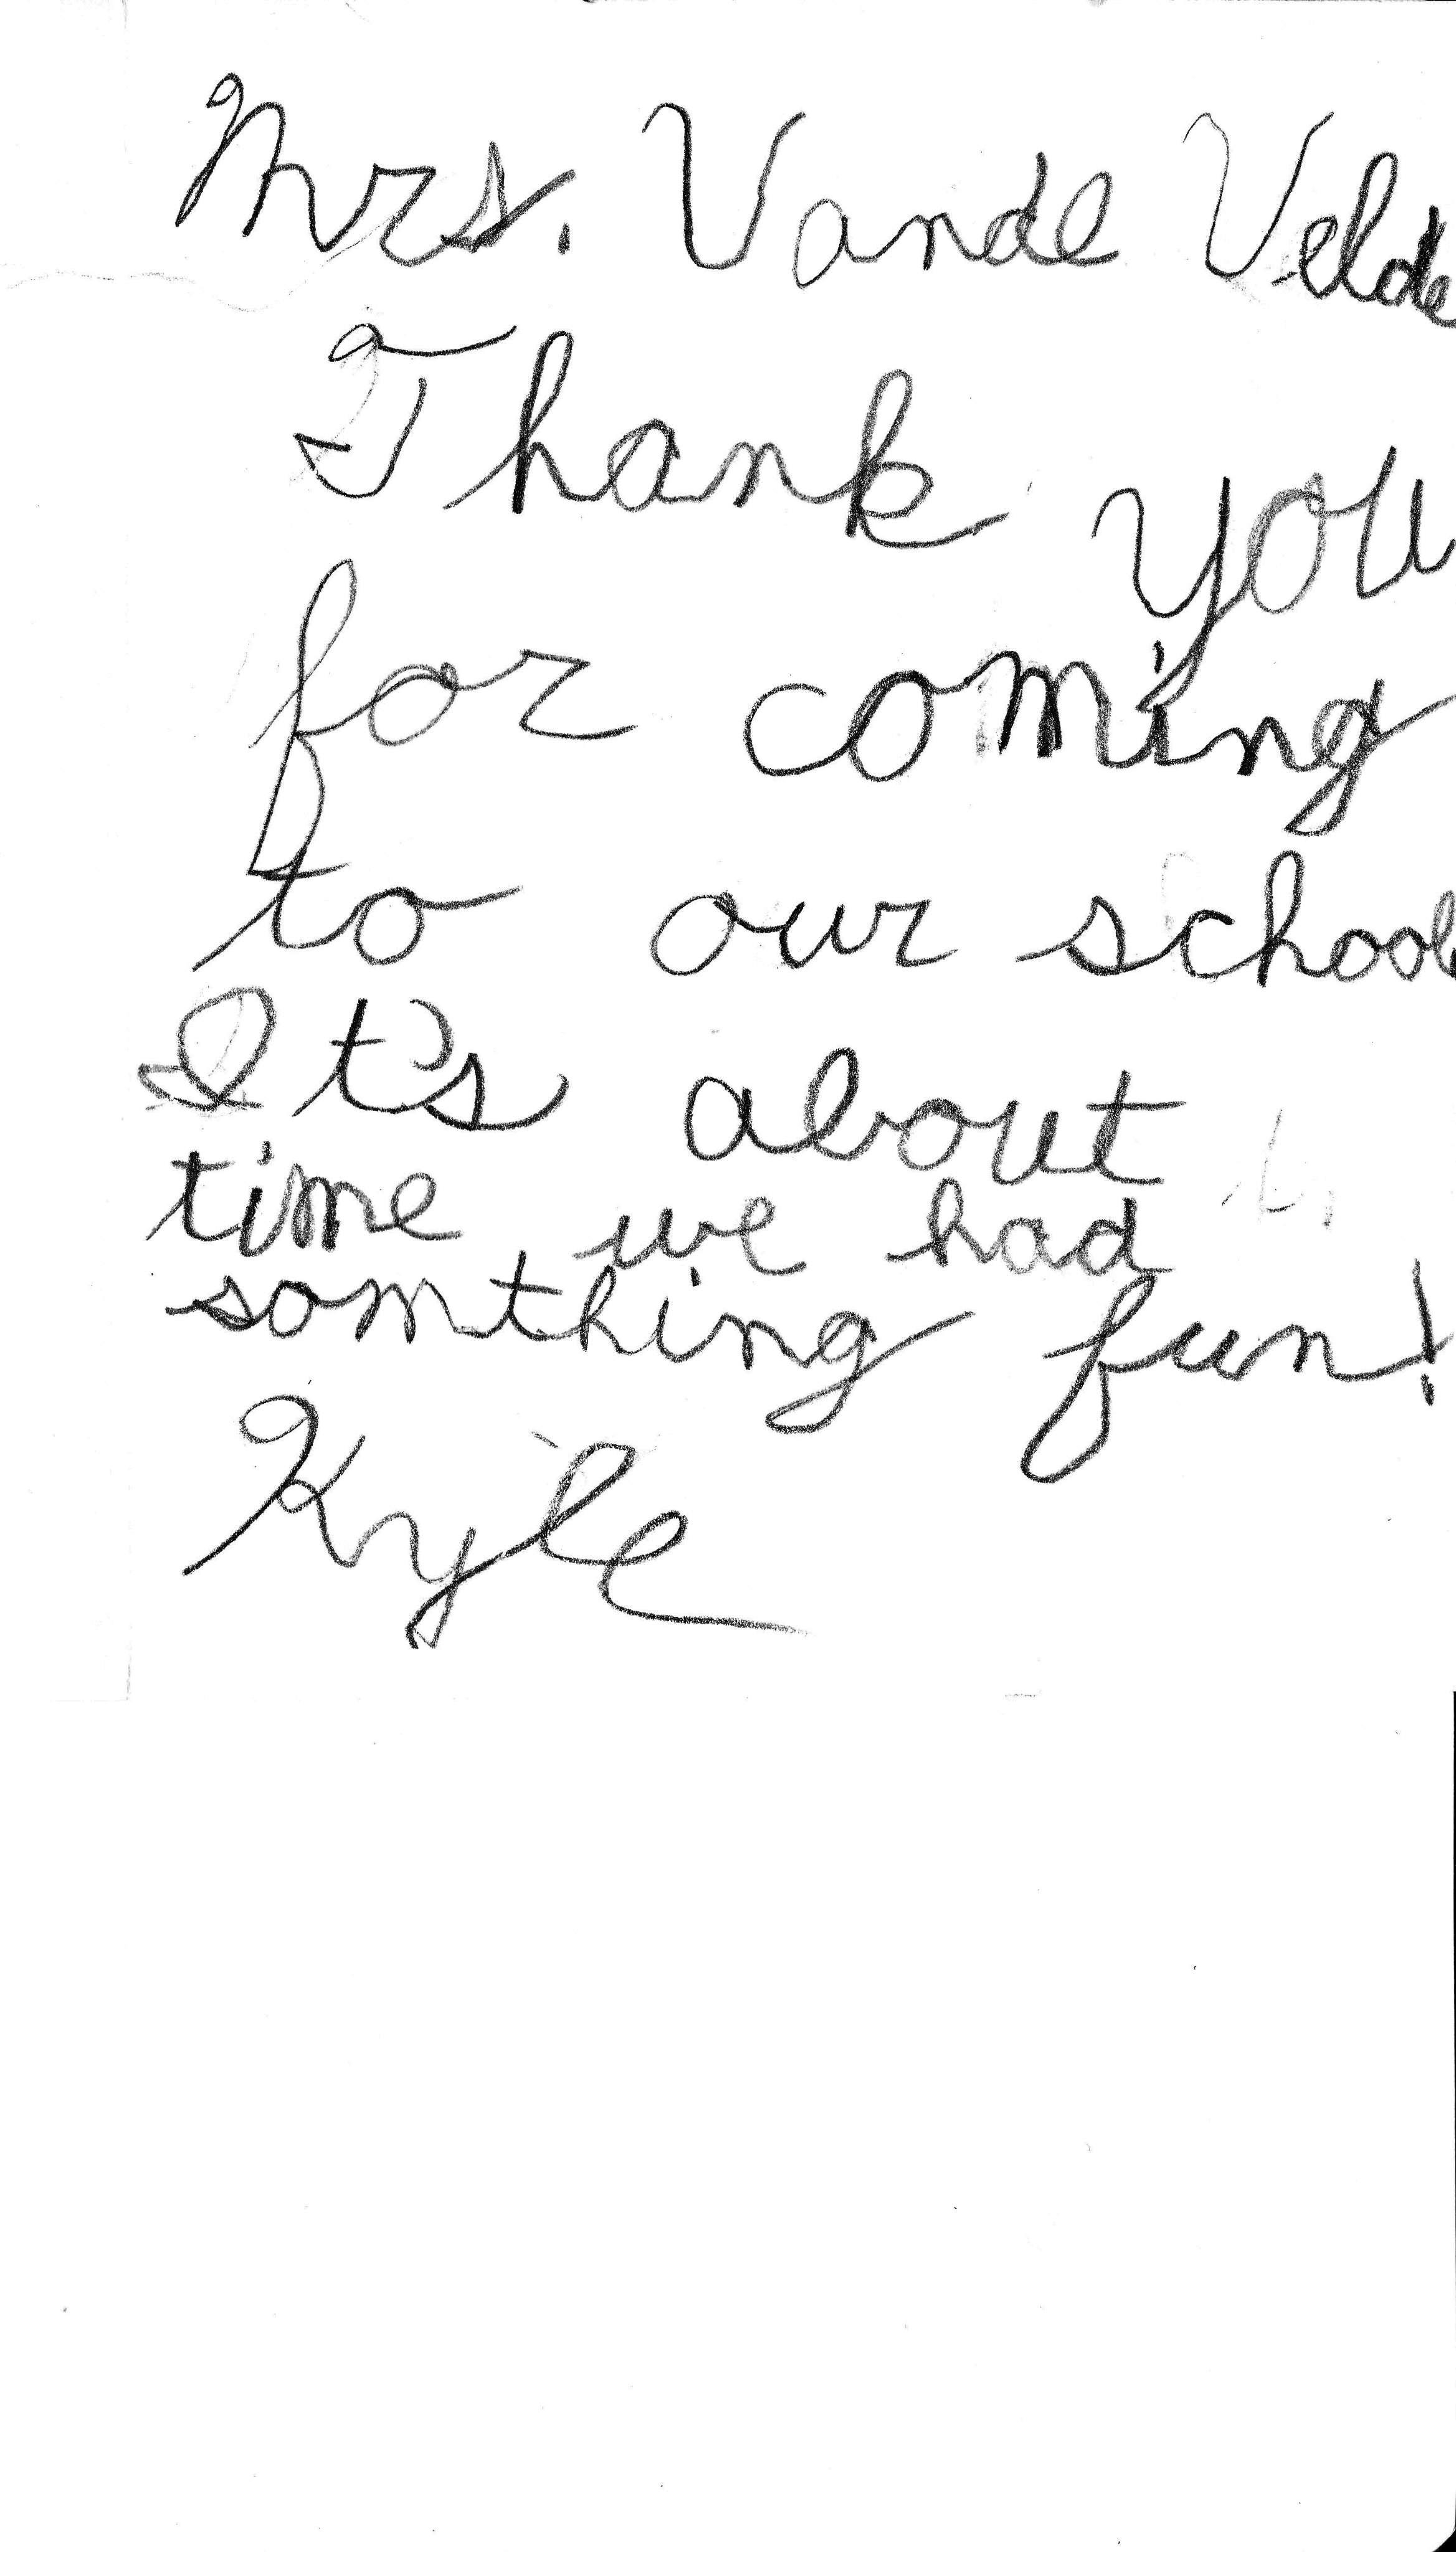 Mrs. Vande Velde
Thank you
for coming
to our school
It's about
time we had
somthing fun!
Kyle